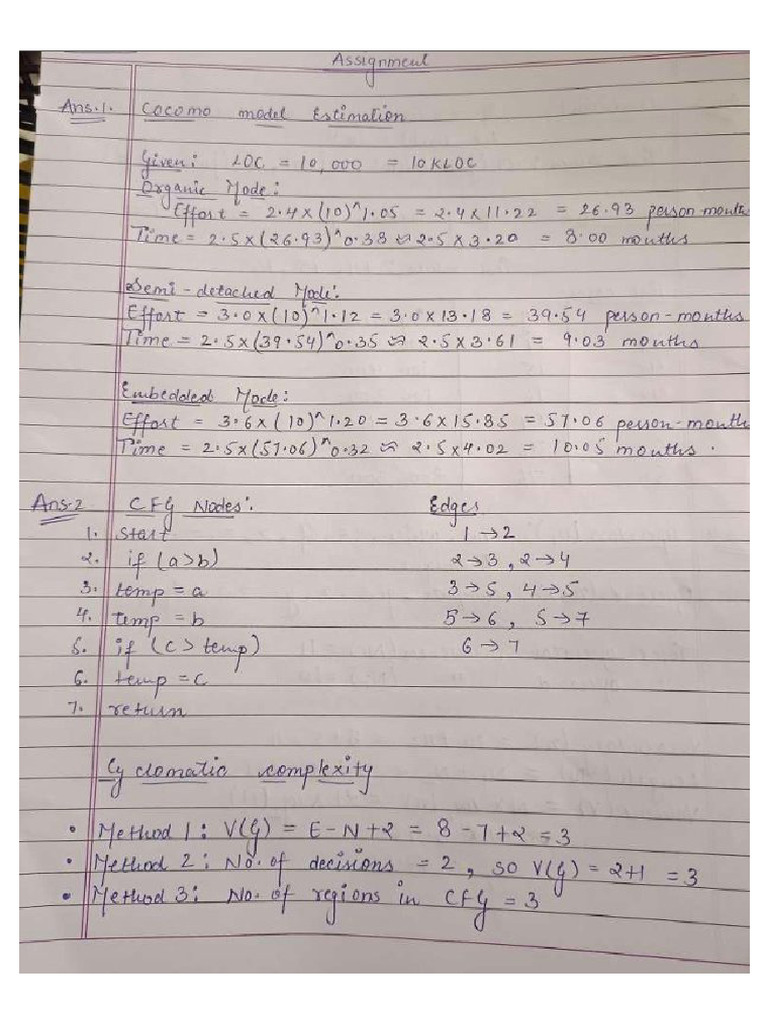 Assignment
Ans.1. Cocomo model Estimation
Given: LOC = 10,000 = 10KLOC
Organic Mode:
Effort = 2.4×(10)^1.05 = 2.4×11.22 = 26.93 person-month
Time = 2.5×(26.93)^0.38 ≈ 2.5×3.20 = 8.00 months
Semi-detached Mode:
Effort = 3.0×(10)^1.12 = 3.0×13.18 = 39.54 person-months
Time = 2.5×(39.54)^0.35 ≈ 2.5×3.61 = 9.03 months
Embedded Mode:
Effort = 3.6×(10)^1.20 = 3.6×15.85 = 57.06 person-month
Time = 2.5×(57.06)^0.32 ≈ 2.5×4.02 = 10.05 months.
Ans.2 CFG Nodes: Edges
1. start 1→2
2. if (a>b) 2→3, 2→4
3. temp = a 3→5, 4→5
4. temp = b 5→6, 5→7
5. if (c> temp) 6→7
6. temp = c
7. return
Cyclomatic complexity
• Method 1: V(G) = E-N+2 = 8-7+2 = 3
• Method 2: No. of decisions = 2, so V(G) = 2+1 = 3
• Method 3: No. of regions in CFG = 3